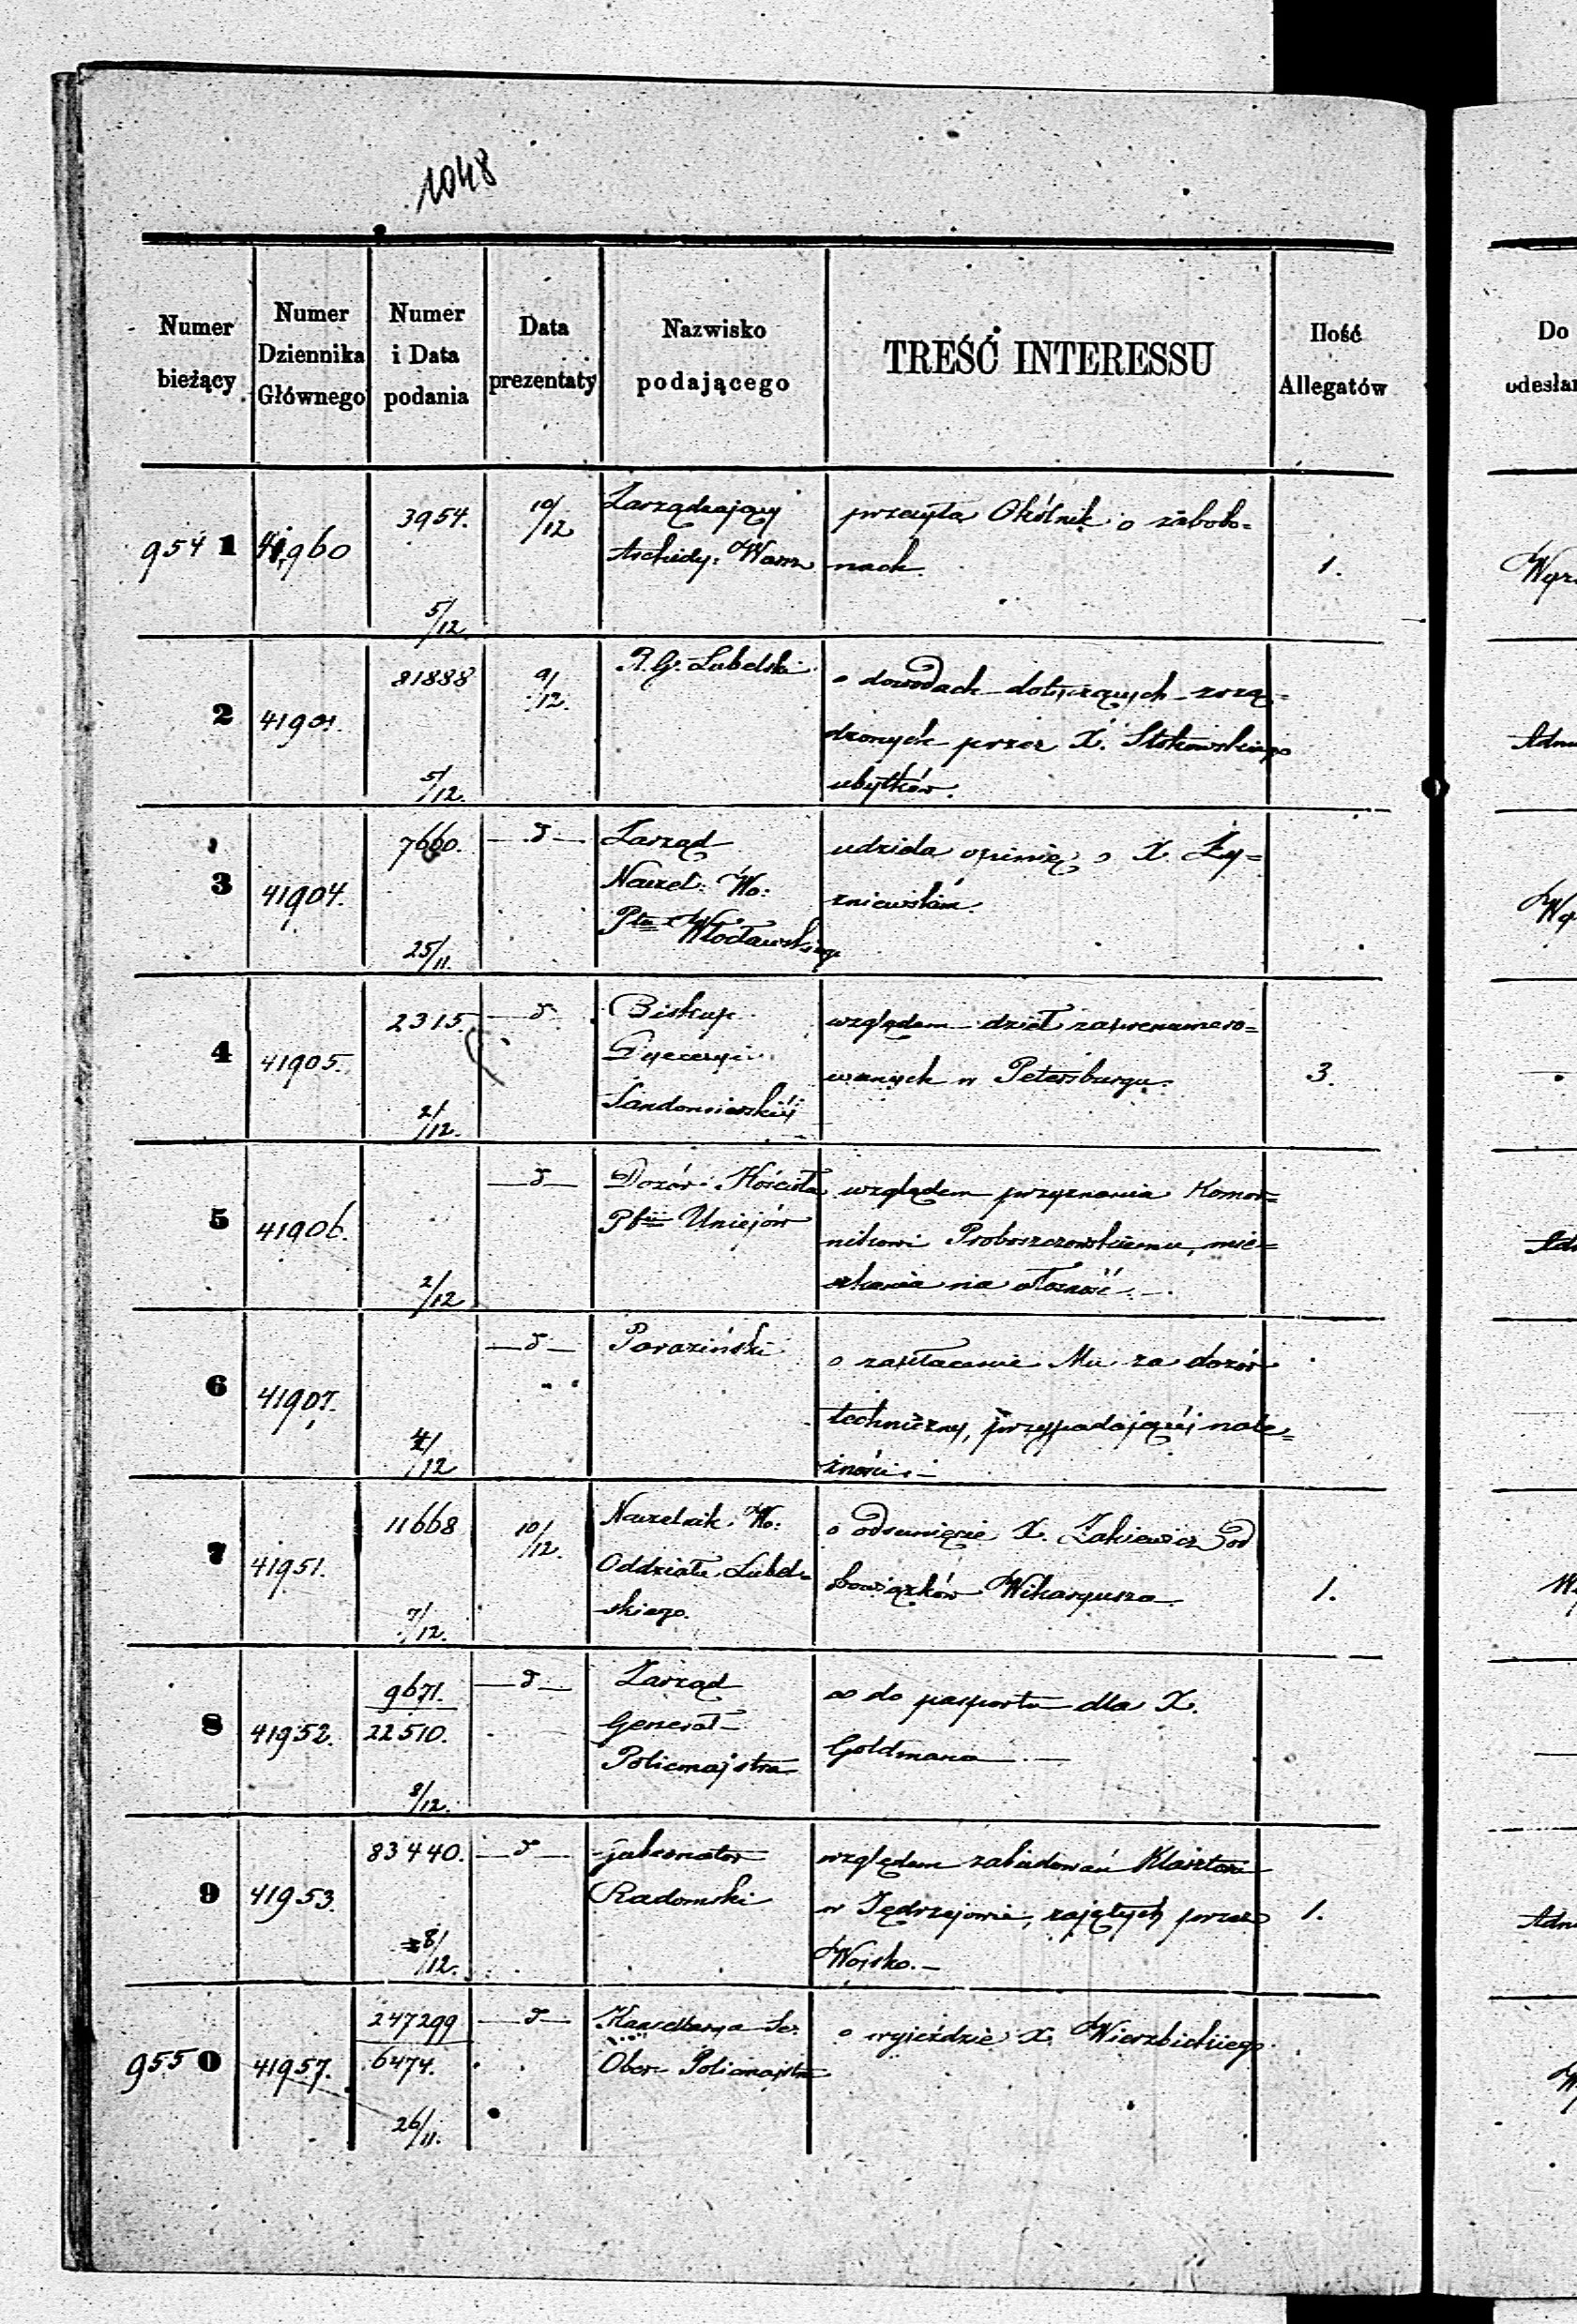 1048
Numer bieżący
Numer Dziennika Głównego
Numer i Data podania
Data prezentaty
Nazwisko podającego
TREŚĆ INTERESSU
Ilość Allegatów
Do
odesłan
9541
41960
3954.
5/12.
10/12
Zarządzający
Archidy: Warsz
przesyła Okólnik o zabobo=
nach.
1.
2
41901.
81888
5/12.
9/12.
R. G. Lubelski
o dowodach dotyczących zrzą=
dzonych przez X. Stokowskiego
ubytków.
3
41904.
7660.
25/11.
d
Zarząd
Naczel: Wo:
Ptu Włocławskiego
udziela opinię o X.
4
41905.
2315.
2/12.
d
Biskup
Dyecezyi
Sandomierskiéj
względem dzieł zaprenumero=
wanych w Petersburgu.
3.
5
41906.
2/12
d
Dozór Kościoła
Pfii Uniejów
względem przyznania Komor=
nikowi Proboszczowskiemu, mie=
szkania na własność.
6
41907.
4/12
d
Paraziński
o zapłacenie Mu za dozór
techniczny, przypadającéj nale=
żności.
7
41951.
11668
7/12.
10/12.
Naczelnik Wo:
Oddziału Lubel=
skiego.
o odsunięcie X. Zakiewicz od
obowiązków Wikaryusza.
1.
8
41952.
9671.
22510.
8/12.
d
Zarząd
Generał
Policmajstra
co do pasportu dla X.
Goldmana
9
41953.
83440.
8/12.
d
Gubernator
Radomski
względem zabudowań Klasztoru
w Jędrzejowie, zajętych przez
Wojsko.
1.
9550
41957.
247299
6474.
26/11.
d
Kancellarya
Ober Policmajstra
o wyjeździe X. Wierzbickiego.